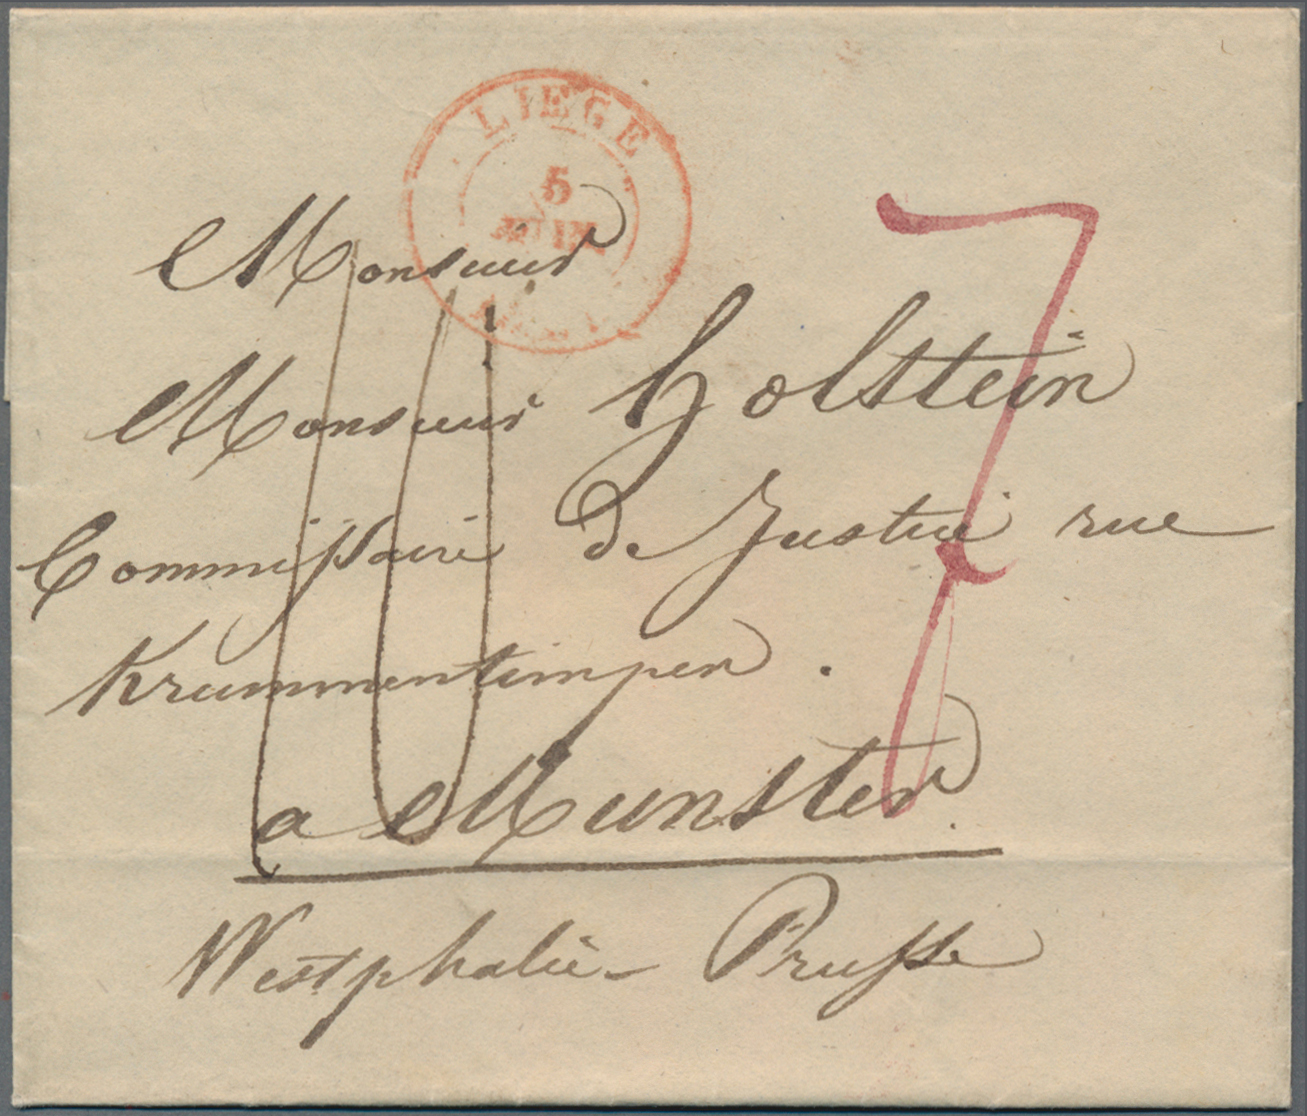 LIEGE
5
JUIN
Monsieur
Monsieur Holstein
Commissaire de Justice rue
Krummentimpen.
a Munster.
Westphalie - Prusse
10
7